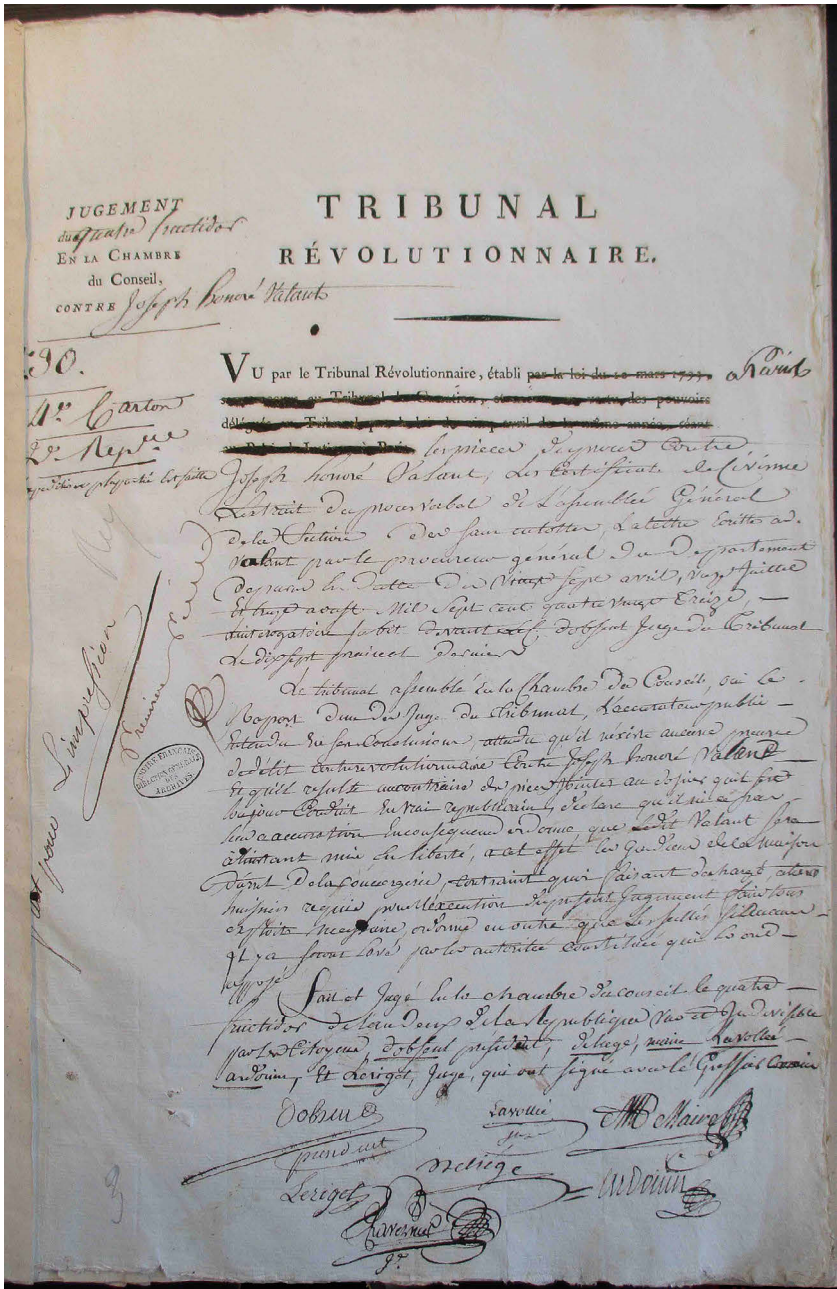 JUGEMENT
du quatre fructidor
EN LA CHAMBRE
du Conseil,
CONTRE Joseph honoré Valant
TRIBUNAL
RÉVOLUTIONNAIRE.
90.
4e Carton
2e
VU par le Tribunal Révolutionnaire, établi par la loi du 10 mars 1793,
au Tribunal de Cassation, des pouvoirs
délégués au Tribunal par la loi du de la même année, séant
au Palais de Justice à Paris les pieces du proces Contre
Joseph honoré Valant, Les Certificats de Civisme
L'extrait du procesverbal de L'assemblée Général
de la Section des sans culottes, La lettre Ecritte a
Valant par le procureur général du Departement
de paris En datte du vingt sept avril, vingt Juillet
Et treize aoust Mil Sept cent quatre vingt treize,
L'interogatoire subit devant dobsent Juge du Tribunal
Le dixsept prairial dernier
Le tribunal assemblé En la Chambre du Conseil, oui le
Raport d'un des Juge du tribunal, L'accusateur public
Entendu En ses Conclusions, attendu qu'il n'existe aucune preuve
de délit contrerevolutionnaire contre Joseph honoré Valant
Et qu'il resulte aucontraire des pieces Jointes au dossier qu'il s'est
toujours Conduit En vrai republicain, declare qu'il n'i a pas
lieu a accusation En consequence ordonne, que ledit Valant sera
à l'instant mis En liberté, a cet effet les Gardiens de la maison
d'arret De la Conciergerie, contraint quoi faisant decharge,
huissiers requis pour l'éxecution du present Jugement faire tous
exploits necessaire, ordonne en outre que les scellés si aucuns
il y a seront levé par les autorités Constituée qui les ont
apposé
Fait et Jugé En la chambre du conseil le quatre
fructidor de l'an Deux de la Republique Une et Indivisible
par les Citoyens, dobsent president, deliege, maire Lavollée
ardouin, Et Leriget, Juges, qui ont signé avec le Greffier
Dobsent
president
Lavollée
Maire
Deliége
Leriget
ardouin
premier
pour L'impression
ARCHIVES
3